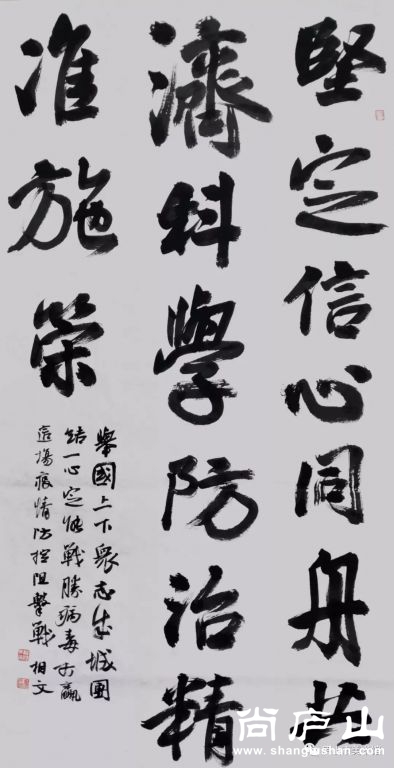 堅定信心同舟共
濟科學防治精
准施策
舉國上下衆志成城團
結一心定能戰勝病毒打贏
這場疫情防控阻擊戰 相文
尚庐山
www.shanglushan.com